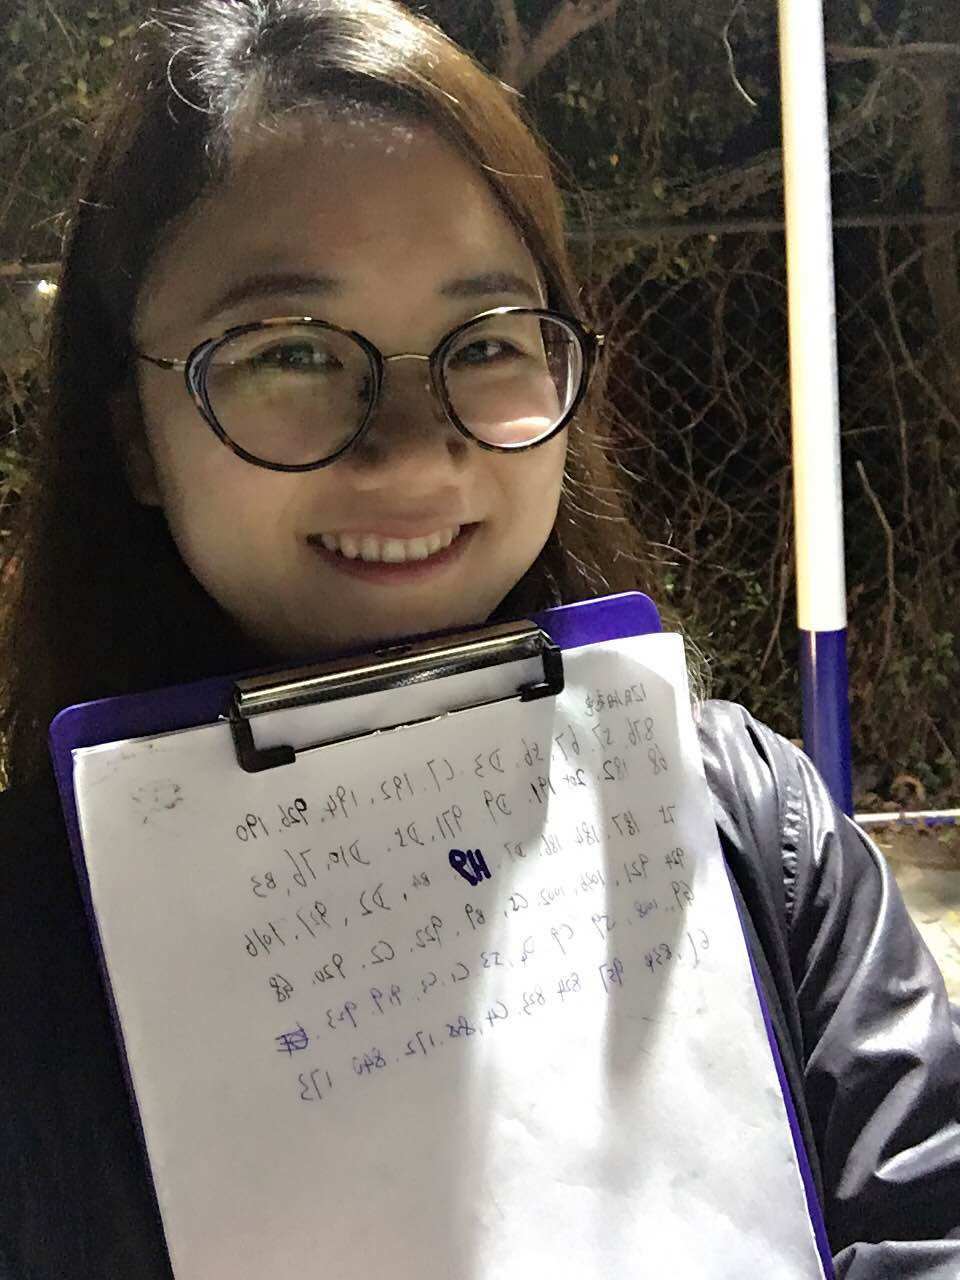 876. 57. 67. 56. D3. C7. 192. 194. 926. 190
68 182. 191. D9 971. D5. D10. 76. B3
75 187. 184 186. D7. H9 B4. D2. 927. 1016
924 921. 1002. C5. B9. 922. C2. 920. 48
69. 1008. 59 C9 53 C1. C3. 919. 923.
61. 834 957 824 823. C4. 172. 840 173